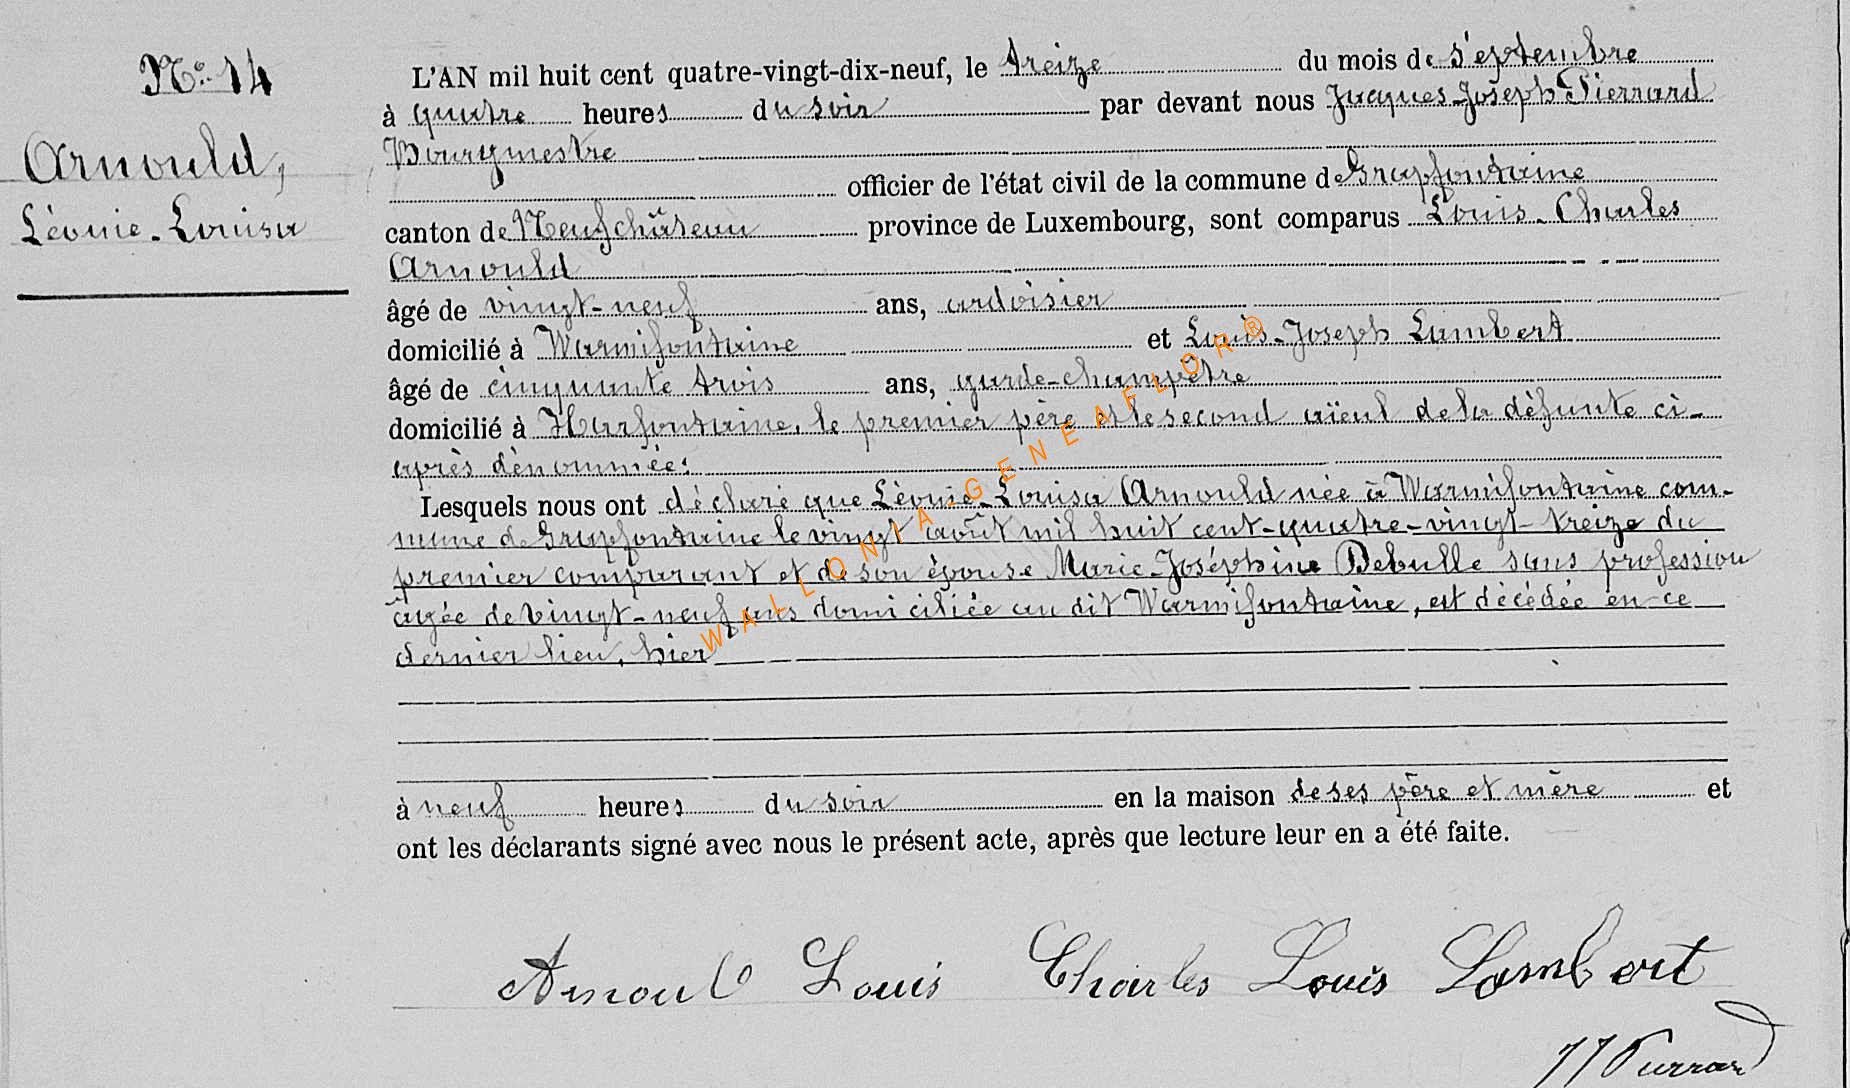 N° 14
Arnould,
Léonie-Louisa
L'AN mil huit cent quatre-vingt-dix-neuf, le treize du mois de septembre
à quatre heures du soir par devant nous Jacques-Joseph Pierrard
Bourgmestre
officier de l'état civil de la commune de Grapfontaine
canton de Neufchâteau province de Luxembourg, sont comparus Louis-Charles
Arnould
âgé de vingt-neuf ans, ardoisier
domicilié à Warmifontaine et Louis-Joseph Lambert
âgé de cinquante trois ans, garde-champêtre
domicilié à Harfontaine, le premier père et le second aïeul de la défunte ci-
après dénommée:
Lesquels nous ont déclaré que Léonie-Louisa Arnould née à Warmifontaine com-
mune de Grapfontaine le vingt août mil huit cent-quatre-vingt-treize du
premier comparant et de son épouse Marie-Joséphine Debulle sans profession
âgée de vingt-neuf ans domiciliée au dit Warmifontaine, est décédée en ce
dernier lieu, hier
à neuf heures du soir en la maison de ses père et mère et
ont les déclarants signé avec nous le présent acte, après que lecture leur en a été faite.
Arnoul Louis Charles Louis Lambert
JJ Pierrard
WALLONIA-GENEAFLOR®